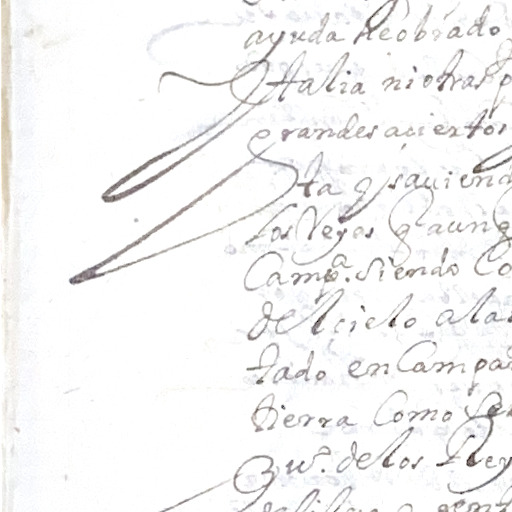 ayuda he obrado
Italia ni otras p
grandes aciertos
ta q saviend
los Reyes q aunq
Camp.ª siendo Co
del cielo a la
tado en Campa
tierra Como Se
de los Rey